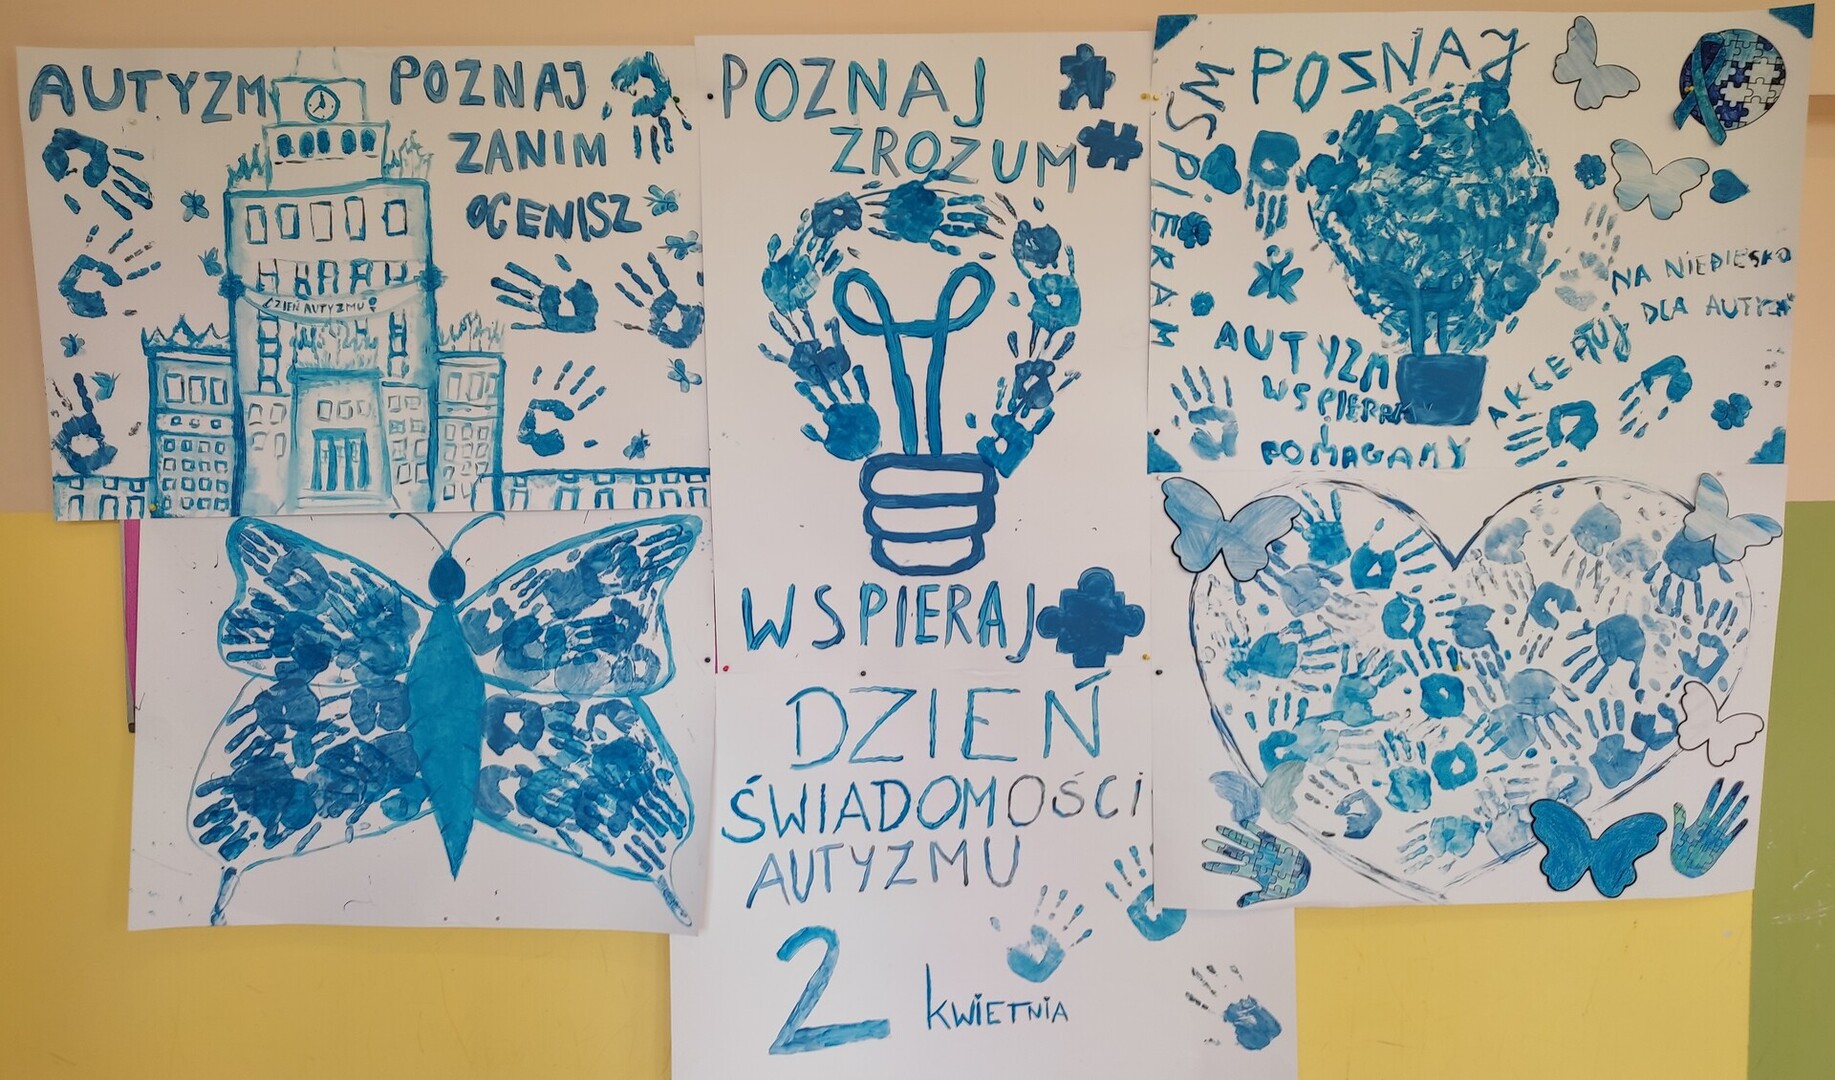 AUTYZM
POZNAJ
ZANIM
OCENISZ
DZIEŃ AUTYZMU!
POZNAJ
ZROZUM
WSPIERAJ
DZIEŃ
ŚWIADOMOŚCI
AUTYZMU
2 KWIETNIA
POSNAJ
WSPIERAM
NA NIEBIESKO
DLA AUTYZM
AKCEPTUJ
AUTYZM
WSPIERAMY
POMAGAMY